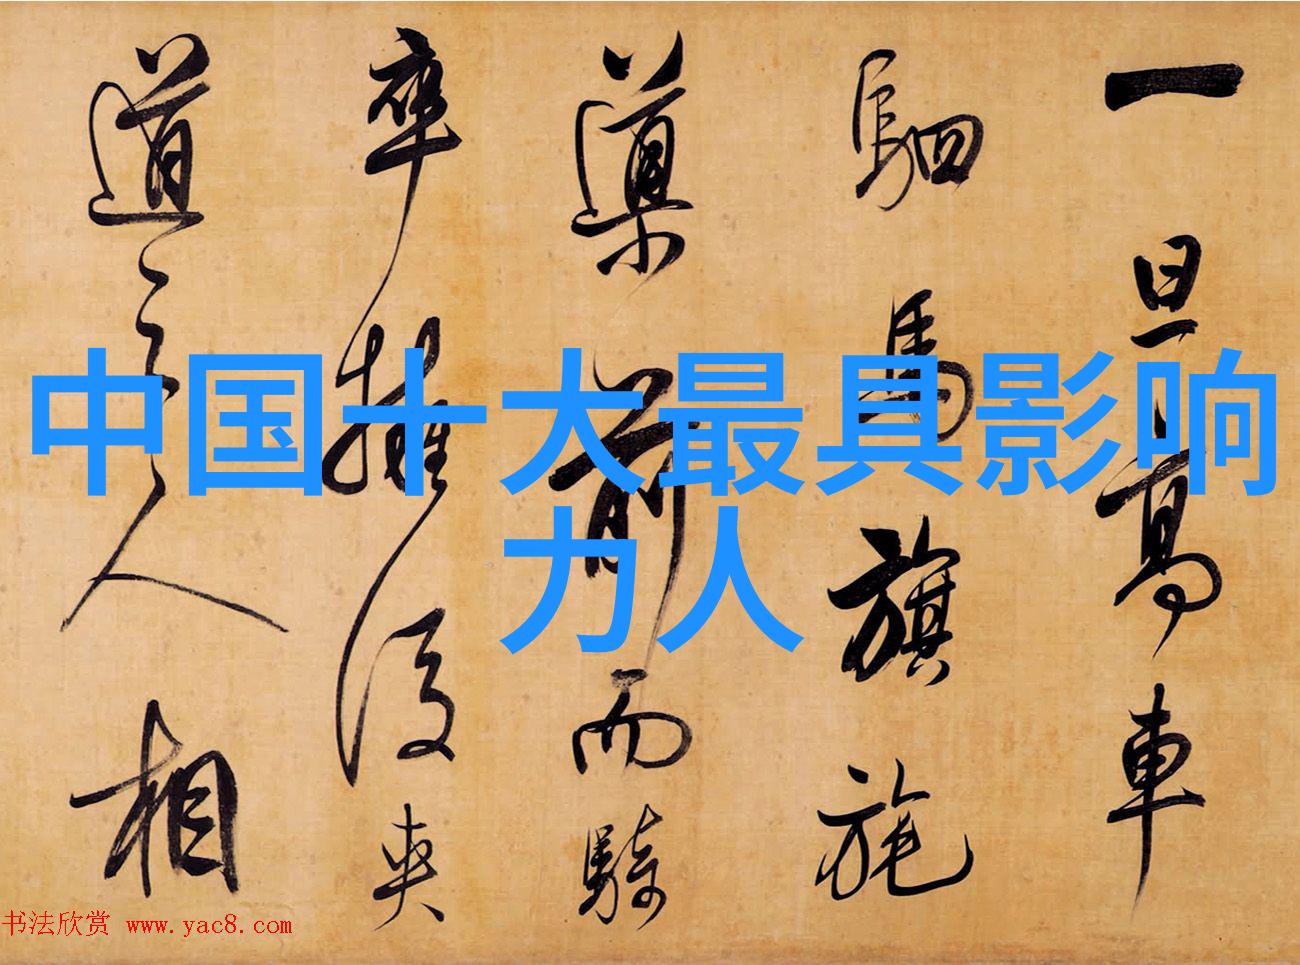 中国十大最具影响
力人
一旦高車
駟馬旗旄
導前而騎
卒擁後夾
道之人相
书法欣赏 www.yac8.com